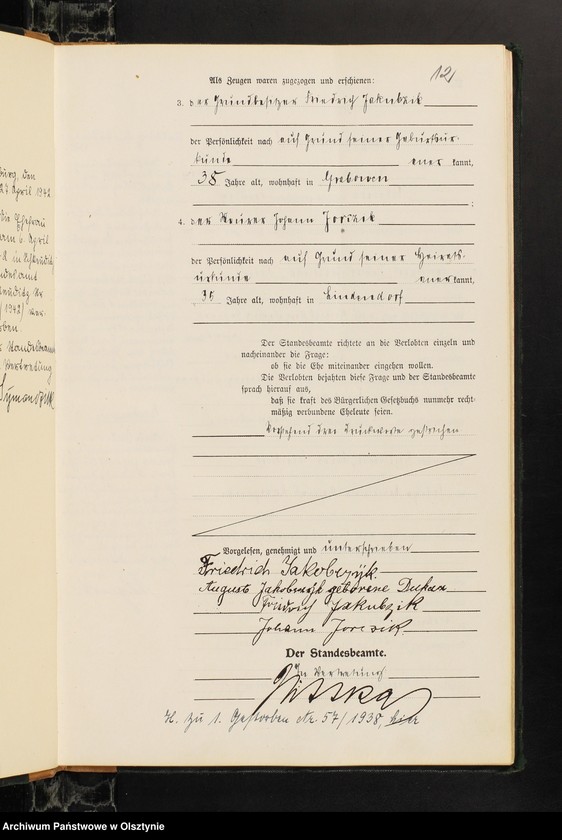 12
Als Zeugen waren zugezogen und erschienen:
3. der Grundbesitzer Friedrich Jakubzik
der Persönlichkeit nach auf Grund seiner Geburtsur-
kunde kannt,
38 Jahre alt, wohnhaft in Grabowen
;
4. der Johann Jorczik
der Persönlichkeit nach auf Grund seiner Heirats-
urkunde kannt,
Jahre alt, wohnhaft in Lindendorf
Der Standesbeamte richtete an die Verlobten einzeln und
nacheinander die Frage:
ob sie die Ehe miteinander eingehen wollen.
Die Verlobten bejahten diese Frage und der Standesbeamte
sprach hierauf aus,
daß sie kraft des Bürgerlichen Gesetzbuchs nunmehr recht-
mäßig verbundene Eheleute seien.
Vorstehend drei Druckworte gestrichen
Vorgelesen, genehmigt und unterschrieben
Friedrich Jakobczyk
Auguste geborene
Friedrich Jakubzik
Johann Jorczik
Der Standesbeamte.
In Vertretung
H. zu 1. Gestorben Nr. 57/1938, hier
den
27 April 1942
die Ehefrau
am 6. April
in
Nr
1942) ver-
ben.
Standesbeamte
Vertretung
Archiwum Państwowe w Olsztynie